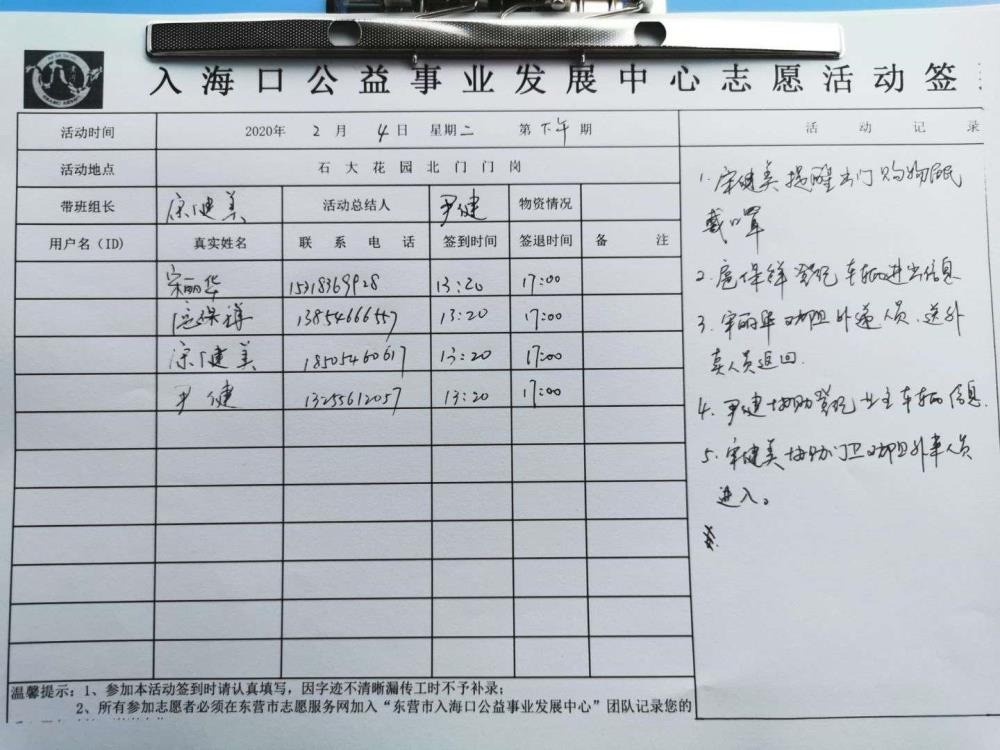 入海口公益事业发展中心志愿活动签
活动时间 2020年 2 月 4 日 星期二 第 下午 期
活动地点 石大花园北门门岗
带班组长 宋健美 活动总结人 尹健 物资情况
用户名(ID) 真实姓名 联系电话 签到时间 签退时间 备注
宋丽华 15318369928 13:20 17:00
扈保祥 13854666557 13:20 17:00
宋健美 18505460617 13:20 17:00
尹健 13255612057 13:20 17:00
温馨提示:1、参加本活动签到时请认真填写,因字迹不清晰漏传工时不予补录;
2、所有参加志愿者必须在东营市志愿服务网加入“东营市入海口公益事业发展中心”团队记录您的
活动记录
1.宋健美提醒出门购物居民
戴口罩
2.扈保祥登记车辆进出信息
3.宋丽华劝阻外递人员、送外
卖人员返回.
4.尹健协助登记业主车辆信息.
5.宋健美协助门卫劝阻外来人员
进入。